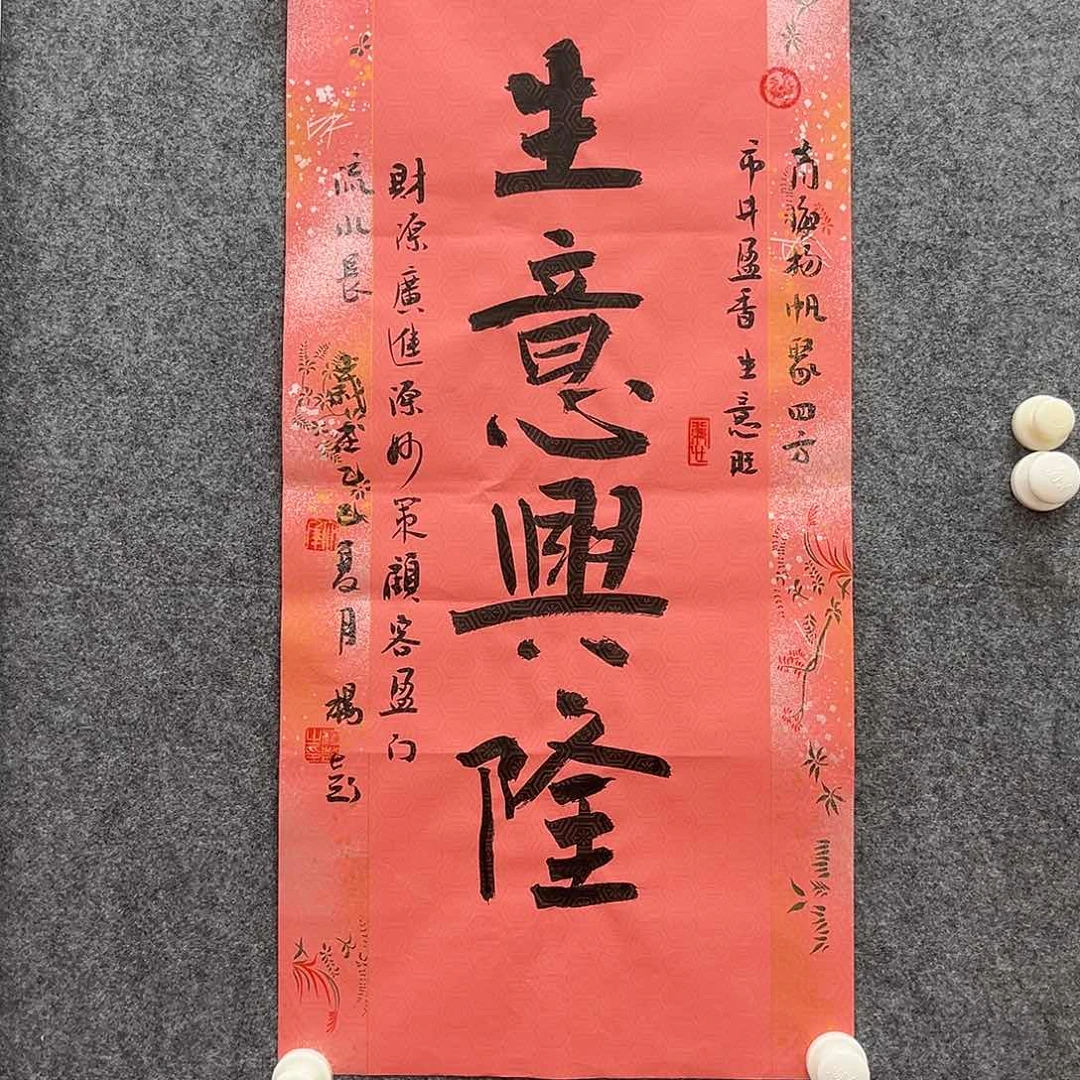 商海揚帆聚四方
市井盈香生意旺
生意興隆
財源廣進源妙策顧客盈门
流水長 歲在乙巳夏月 楊